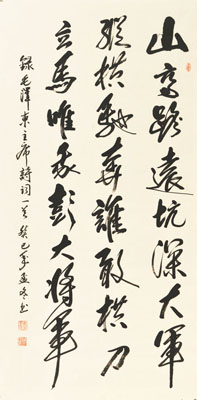 山高路遠坑深大軍
縱橫馳奔誰敢橫刀
立馬唯我彭大將軍
錄毛澤東主席詩詞一首 癸巳年孟冬書